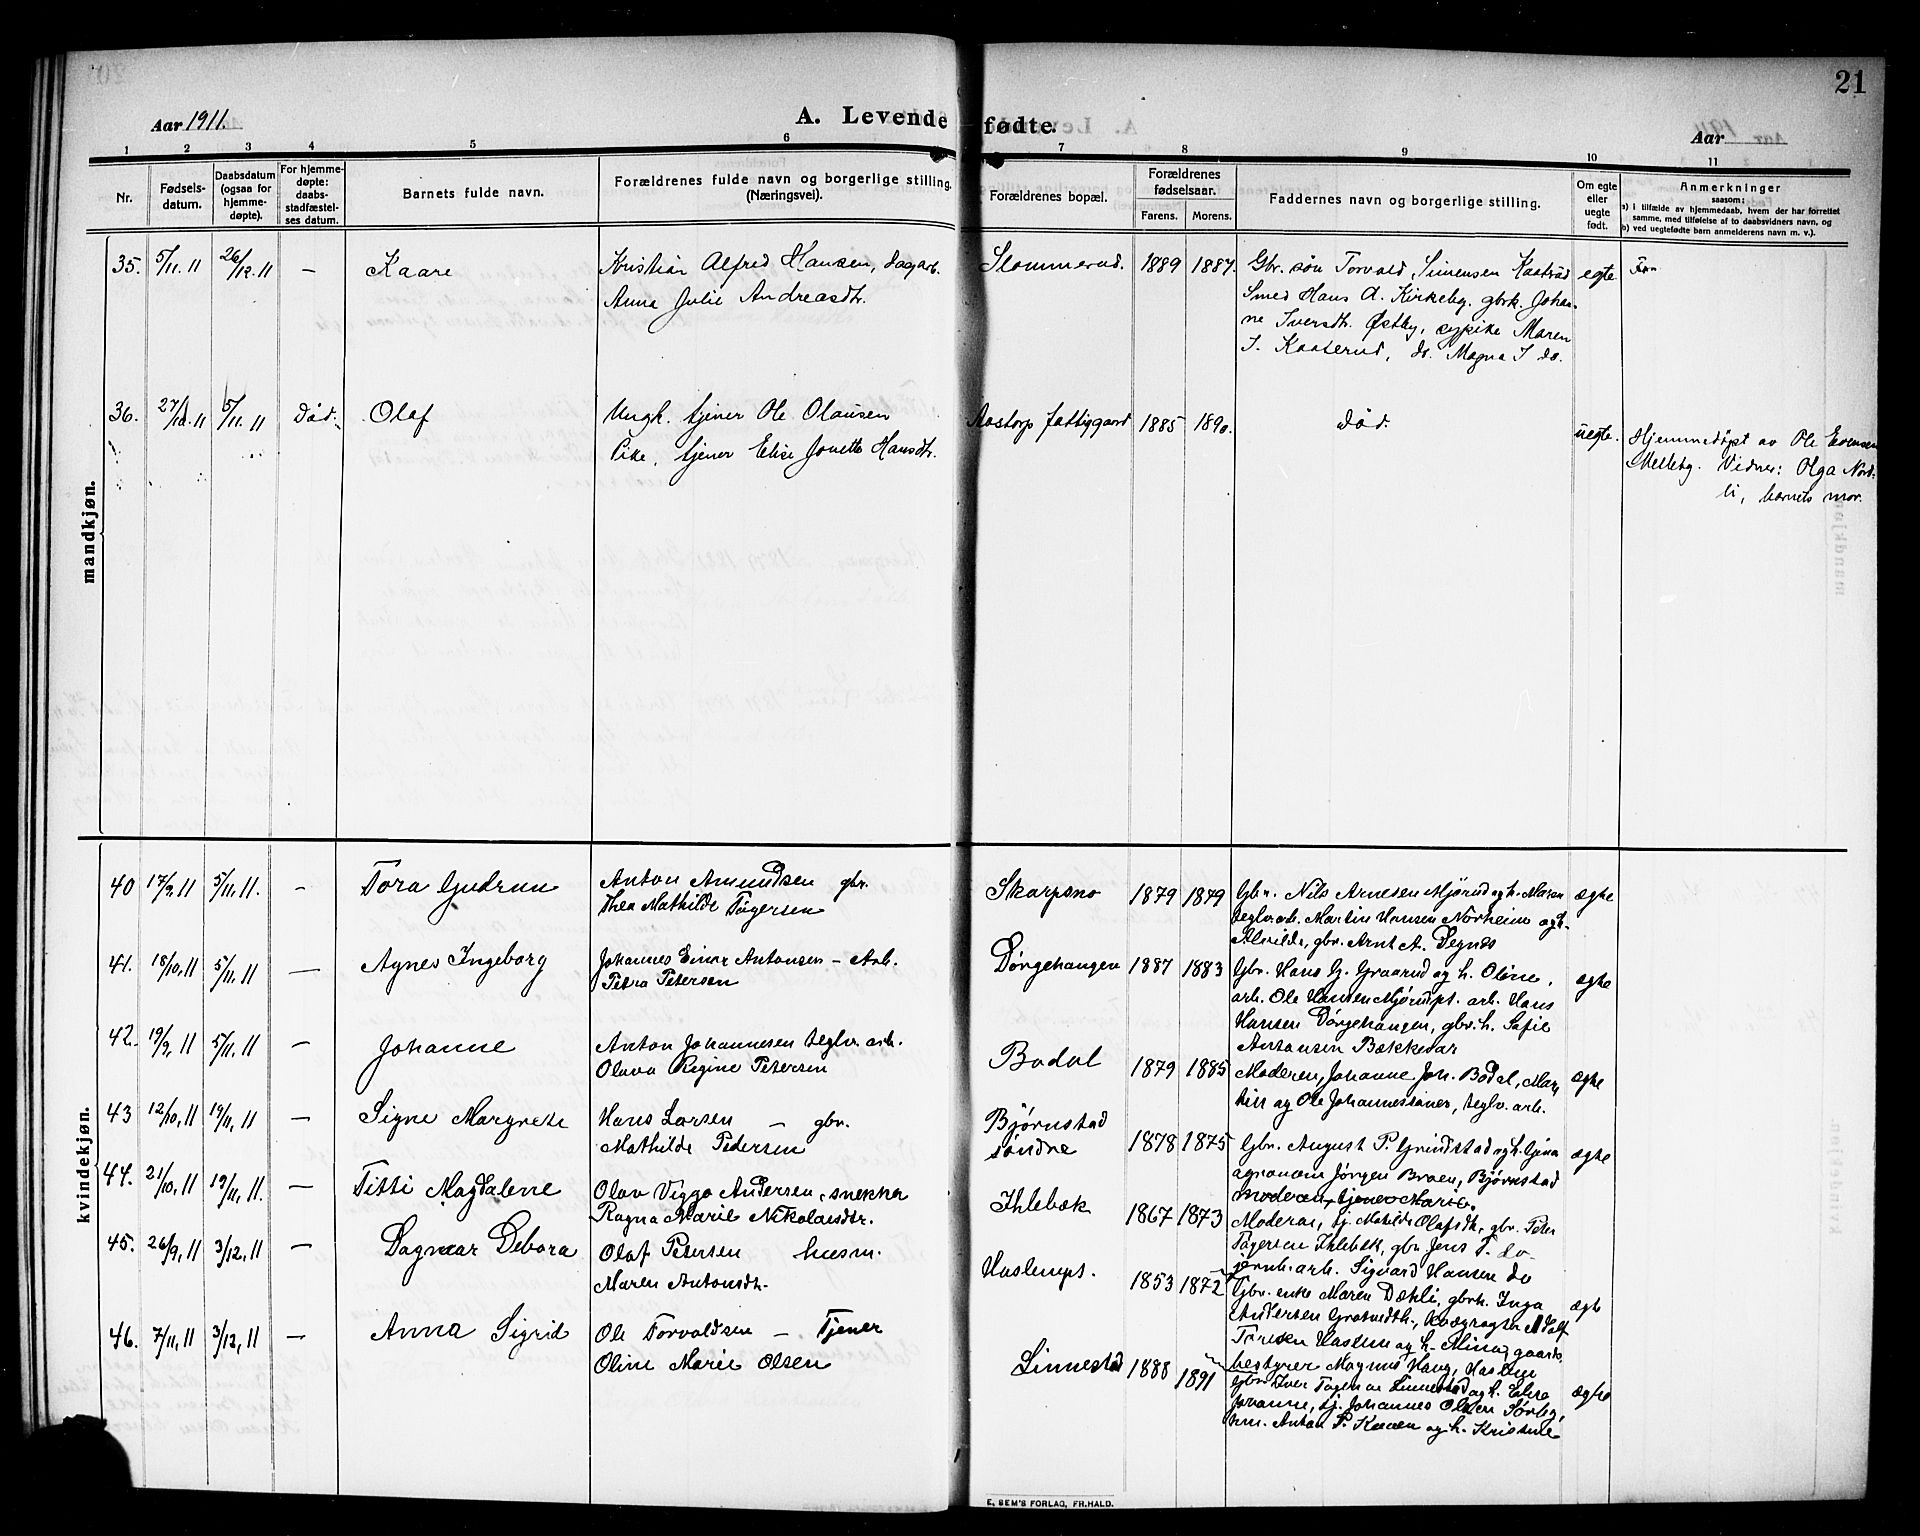 21
Aar 1911.
A. Levende fødte.
Aar
1 2 3 4 5 6 7 8 9 10 11
Nr.
Fødsels-
datum.
Daabsdatum
(ogsaa for
hjemme-
døpte).
For hjemme-
døpte: daabs-
stadfæstel-
ses datum.
Barnets fulde navn.
Forældrenes fulde navn og borgerlige stilling.
(Næringsvei).
Forældrenes bopæl.
Forældrenes
fødselsaar.
Farens. Morens.
Faddernes navn og borgerlige stilling.
Om egte
eller
uegte
født.
Anmerkninger
saasom:
a) i tilfælde av hjemmedaab, hvem der har forrettet
samme, med tilføielse af to daabsvidners navn, og
b) ved uegtefødte barn anmelderens navn m. v.).
mandkjøn.
35. 5/11. 11 26/12. 11 – Kaare Kristian Alfred Hansen, dagarb. Slommerud. 1889 1887. Gbr. søn Torvald Simensen Kaaterud egte
Anna Julie Andreasdtr. Smed Hans A. Kirkeby, gbrk. Johan-
ne Iversdtr. Østby, sypike Maren
S. Kaaterud, ds. Magna S do.
36. 27/10. 11 5/11. 11 Død. Olaf Ungk. tjener Ole Olausen Aastorp fattiggaard 1885 1890. død. uegte. Hjemmedøpt av Ole Evensen
Pike, tjener Elise Jonette Hansdtr. Melleby. Vidner: Olga Nord-
li, barnets mor.
kvindekjøn.
40 17/9, 11 5/11, 11. – Tora Gudrun Anton Amundsen gbr. Skarpsno 1879 1879 Gbr. Nils Arnesen Mjørud og h. Maren ægte
Thea Mathilde Tøgersen teglv. arb. Martin Hansen Norheim og h.
Alvilde, gbr. Arnt A. Degnes
41. 18/10, 11 5/11, 11 – Agnes Ingeborg Johannes Einar Antonsen – Arb. Dørgehaugen 1887 1883 Gbr. Hans G. Graarud og h. Oline, ægte
Petra Petersen arb. Ole Hansen Mjørudpt. arb. Hans
Hansen Dørgehaugen, gbr. h. Sofie
Antonsen Bækkevar
42. 19/9, 11 5/11. 11 – Johanne Anton Johannesen teglv. arb. Bodal 1879 1885 Moderen, Johanne Joh. Bodal, Mar- ægte
Olava Regine Petersen tin og Ole Johannessøner, teglv. arb.
43 12/10, 11 19/11, 11 – Signe Margrete Hans Larsen – gbr. Bjørnstad
søndre 1878 1875 Gbr. August P. Grindstad og h. Gina ægte
Mathilde Pedersen agronom Jørgen Braen, Bjørnstad
moderen, tjener Marie.
44. 21/10, 11 19/11, 11. – Titti Magdalene Olav Viggo Andersen, snekker Ihlebæk 1867 1873 Moderen, tj. Matilde Olafsdtr., gbr. Peter
Ragna Marie Nikolaisdtr. Tøgersen Ihlebæk, gbr. Jens T. do
jernb. arb. Sigvard Hansen do
45. 26/9, 11 3/12, 11 – Dagmar Debora Olaf Petersen husm. Haslumpt. 1853 1872 Gbr. enke Maren Dæhli, gbrk. Inga ægte
Maren Antonsdtr. Andersen kvægrøgter Adolf
Haslum og h. Mina, gaards-
bestyrer Magnus Haug, Haslum
46. 7/11, 11 3/12, 11 – Anna Sigrid Ole Torvaldsen – Tjener Linnestad 1888 1891 Gbr. Iver Linnestad og h. ægte
Oline Marie Olsen Johanne, tj. Johannes Olsen Sørby,
hm. Anton P. og h. Kristine
E. SEM'S FORLAG, FR.HALD.